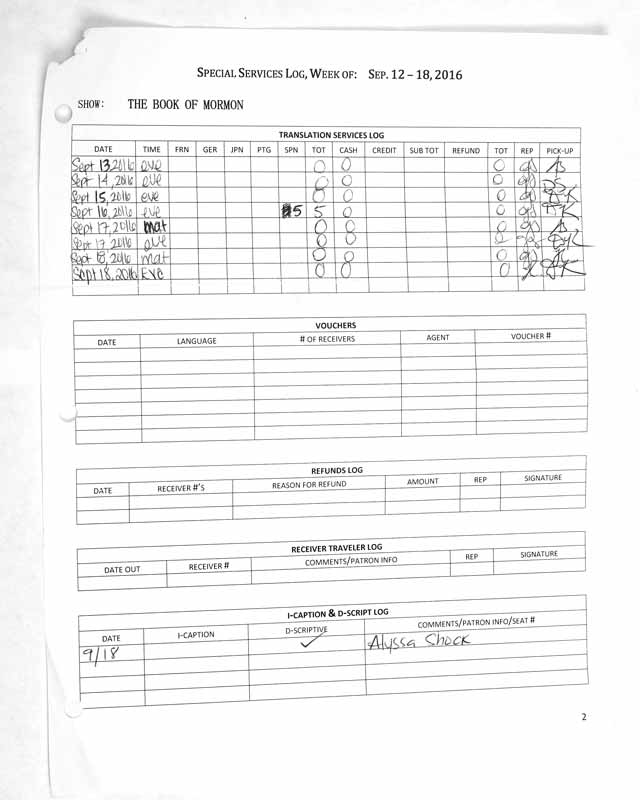 SPECIAL SERVICES LOG, WEEK OF: SEP. 12 – 18, 2016
SHOW: THE BOOK OF MORMON
TRANSLATION SERVICES LOG
DATE TIME FRN GER JPN PTG SPN TOT CASH CREDIT SUB TOT REFUND TOT REP PICK-UP
Sept 13, 2016 eve 0 0 0
Sept 14, 2016 eve 0 0 0
Sept 15, 2016 eve 0 0 0
Sept 16, 2016 eve 5 5 0 0
Sept 17, 2016 mat 0 0 0
Sept 17, 2016 eve 0 0
Sept 18, 2016 mat 0 0 0
Sept 18, 2016 Eve 0 0 0
VOUCHERS
DATE LANGUAGE # OF RECEIVERS AGENT VOUCHER #
REFUNDS LOG
DATE RECEIVER #'S REASON FOR REFUND AMOUNT REP SIGNATURE
RECEIVER TRAVELER LOG
DATE OUT RECEIVER # COMMENTS/PATRON INFO REP SIGNATURE
I-CAPTION & D-SCRIPT LOG
DATE I-CAPTION D-SCRIPTIVE COMMENTS/PATRON INFO/SEAT #
9/18 ✓ Alyssa Shock
2